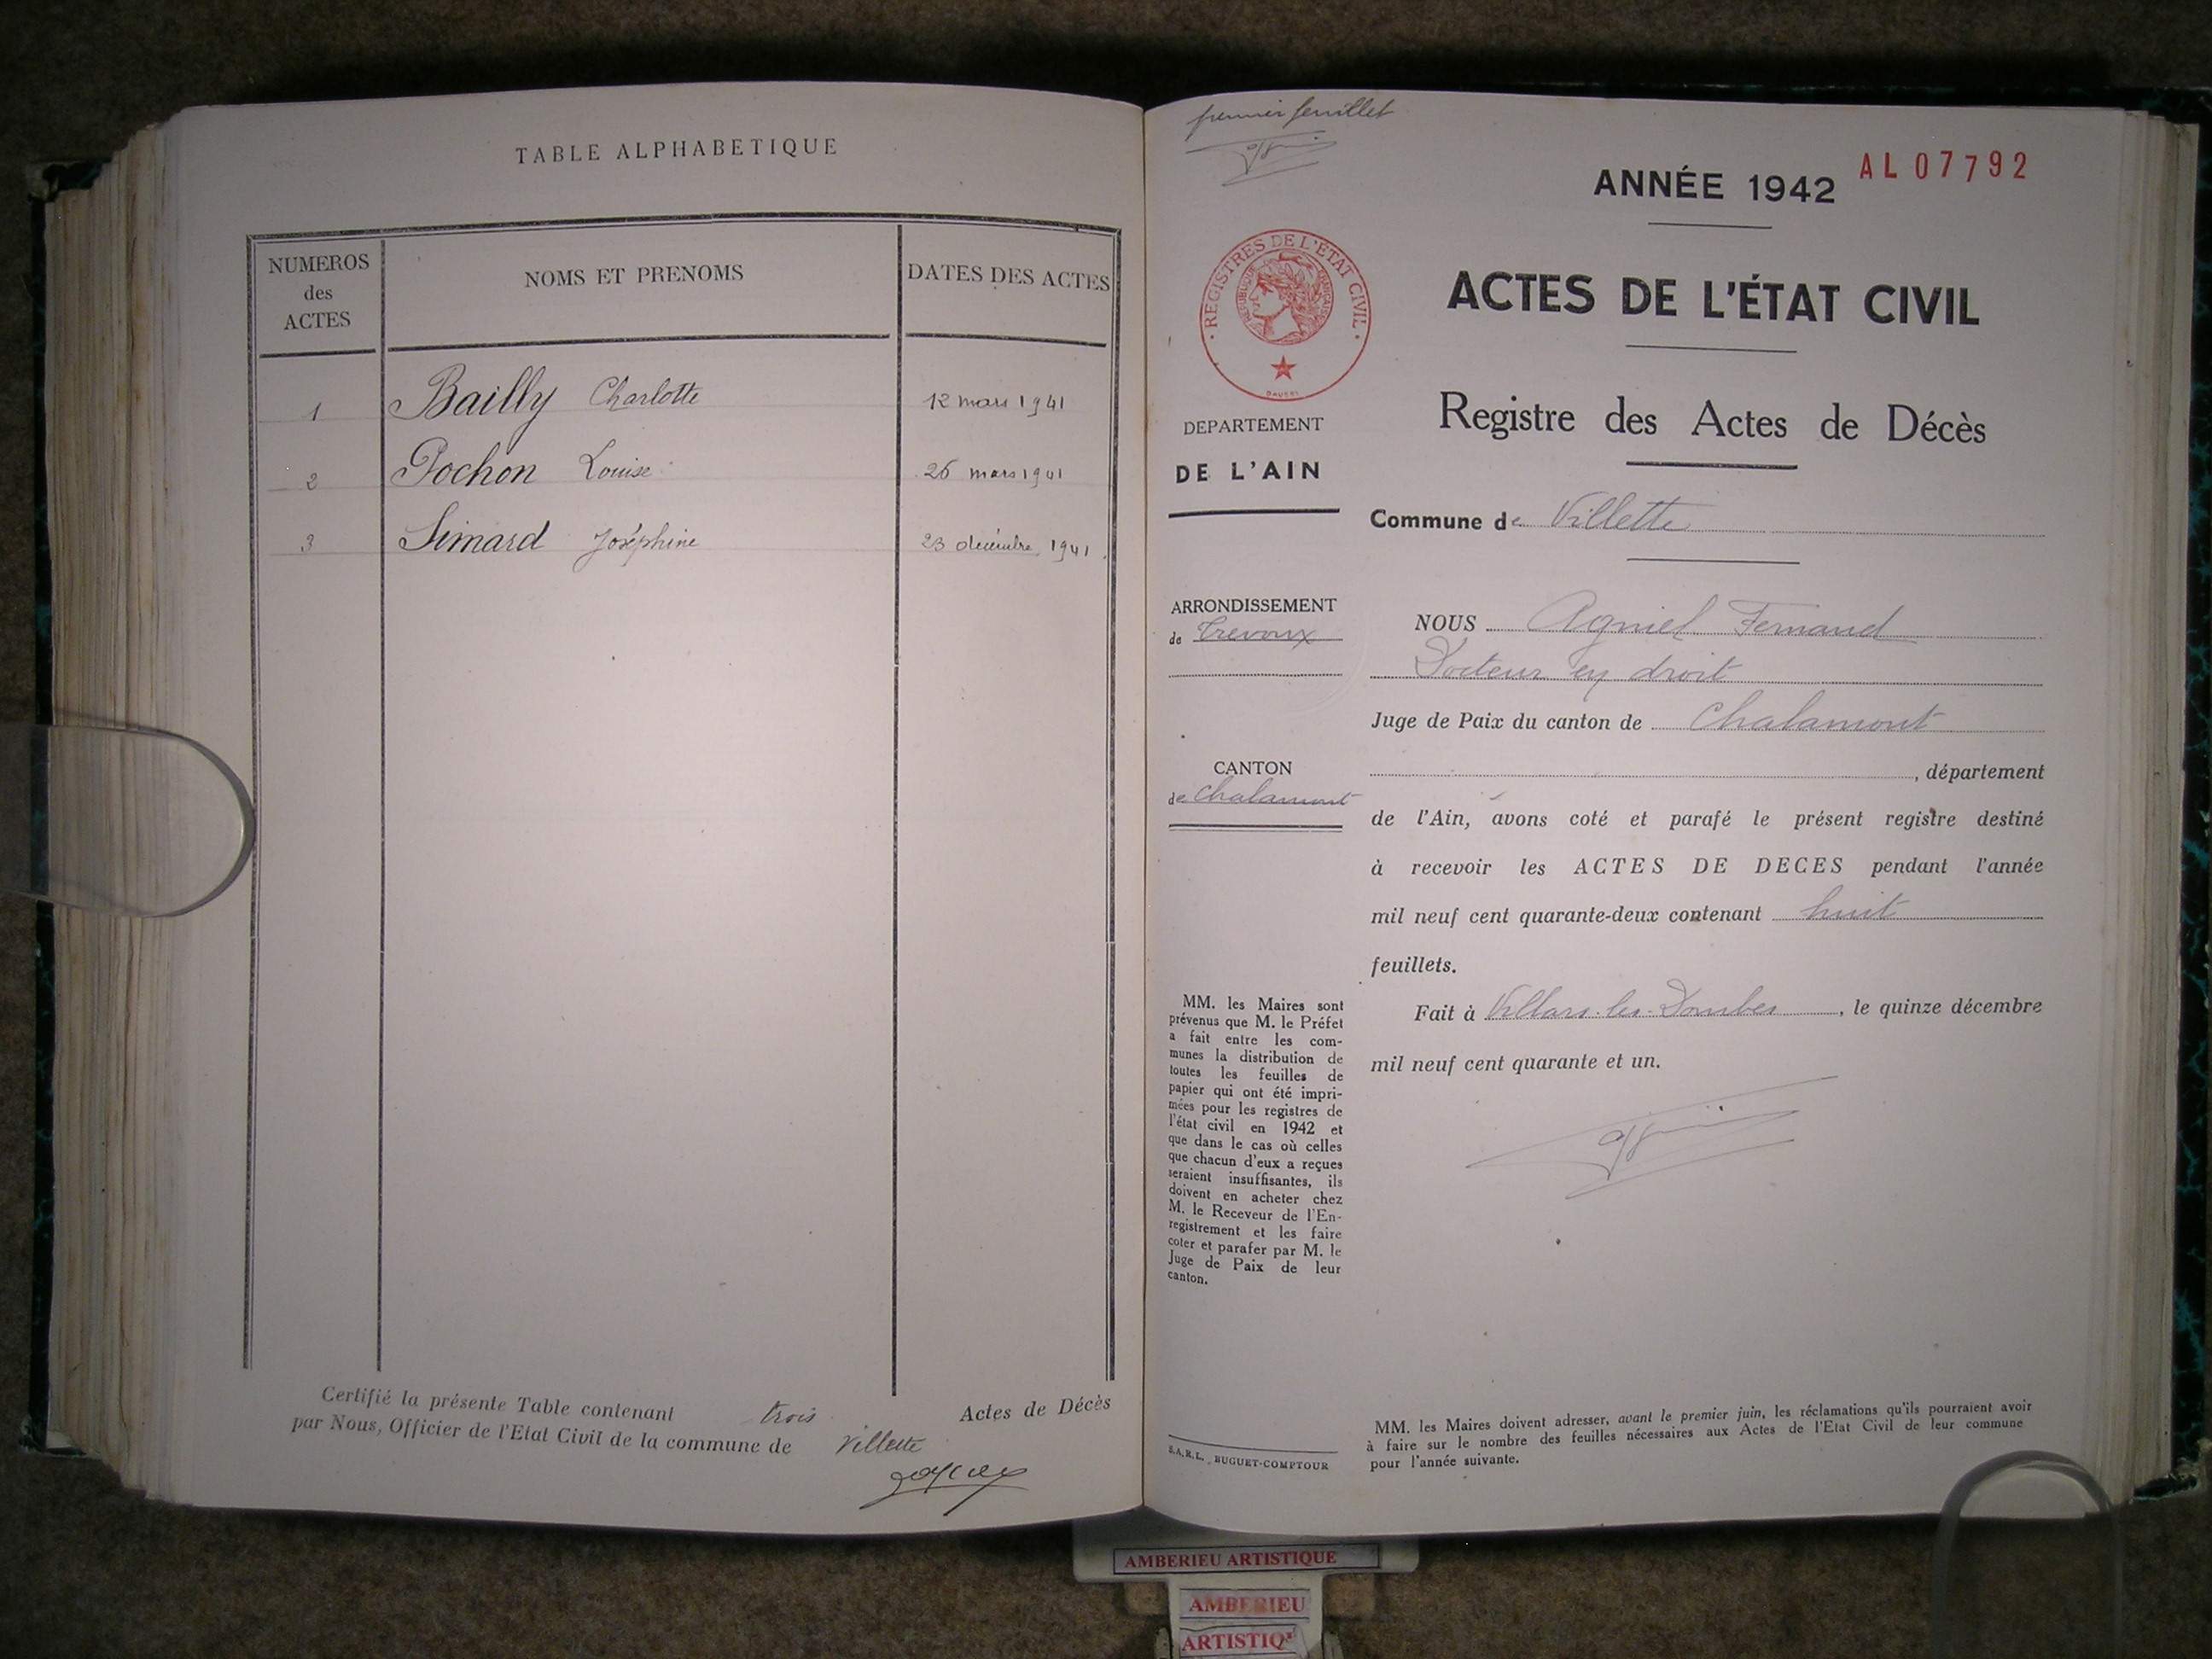 TABLE ALPHABETIQUE
NUMEROS
des
ACTES
NOMS ET PRENOMS
DATES DES ACTES
1 Bailly Charlotte 12 mars 1941
2 Pochon Louise 26 mars 1941
3 Simard Joséphine 23 décembre 1941
Certifié la présente Table contenant trois Actes de Décès
par Nous, Officier de l'Etat Civil de la commune de Villette
premier feuillet
ANNÉE 1942 AL07792
REGISTRES DE L'ETAT CIVIL
REPUBLIQUE FRANÇAISE
ACTES DE L'ÉTAT CIVIL
Registre des Actes de Décès
DEPARTEMENT
DE L'AIN
Commune de Villette
ARRONDISSEMENT
de Trevoux
CANTON
de Chalamont
NOUS Agniel Fernand
Docteur en droit
Juge de Paix du canton de Chalamont
, département
de l'Ain, avons coté et parafé le présent registre destiné
à recevoir les ACTES DE DECES pendant l'année
mil neuf cent quarante-deux contenant huit
feuillets.
Fait à Villars-les-Dombes, le quinze décembre
mil neuf cent quarante et un.
MM. les Maires sont
prévenus que M. le Préfet
a fait entre les com-
munes la distribution de
toutes les feuilles de
papier qui ont été impri-
mées pour les registres de
l'état civil en 1942 et
que dans le cas où celles
que chacun d'eux a reçues
seraient insuffisantes, ils
doivent en acheter chez
M. le Receveur de l'En-
registrement et les faire
coter et parafer par M. le
Juge de Paix de leur
canton.
S.A.R.L. BUGUET-COMPTOUR
MM. les Maires doivent adresser, avant le premier juin, les réclamations qu'ils pourraient avoir
à faire sur le nombre des feuilles nécessaires aux Actes de l'Etat Civil de leur commune
pour l'année suivante.
AMBERIEU ARTISTIQUE
AMBERIEU
ARTISTIQ